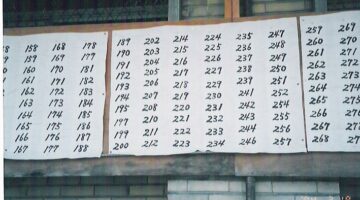 158 168 178
159 169 179
160 170 181
161 171 182
162 172 183
163 173 184
164 174 185
165 175 186
166 176 187
167 177 188
189 202 214 224 235 247
190 203 215 225 236 248
191 204 216 226 237 249
192 205 217 227 238 250
193 206 218 229 239 251
194 207 219 230 241 252
195 208 220 231 242 254
197 210 221 232 243 255
199 211 222 233 245 256
200 212 223 234 246 257
259
260
261
262
263
264
265
266
267
268